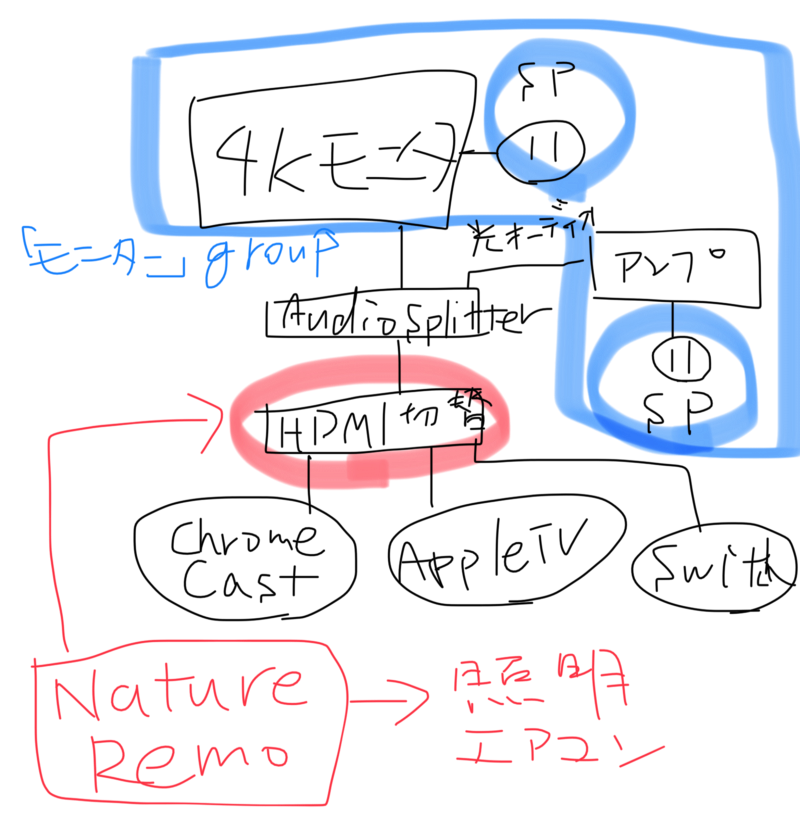 SP
4Kモニタ
光オーディオ
「モニター」group
アンプ
AudioSplitter
SP
HDMI切替
Chrome
Cast
AppleTV
Switch
Nature
Remo
照明
エアコン